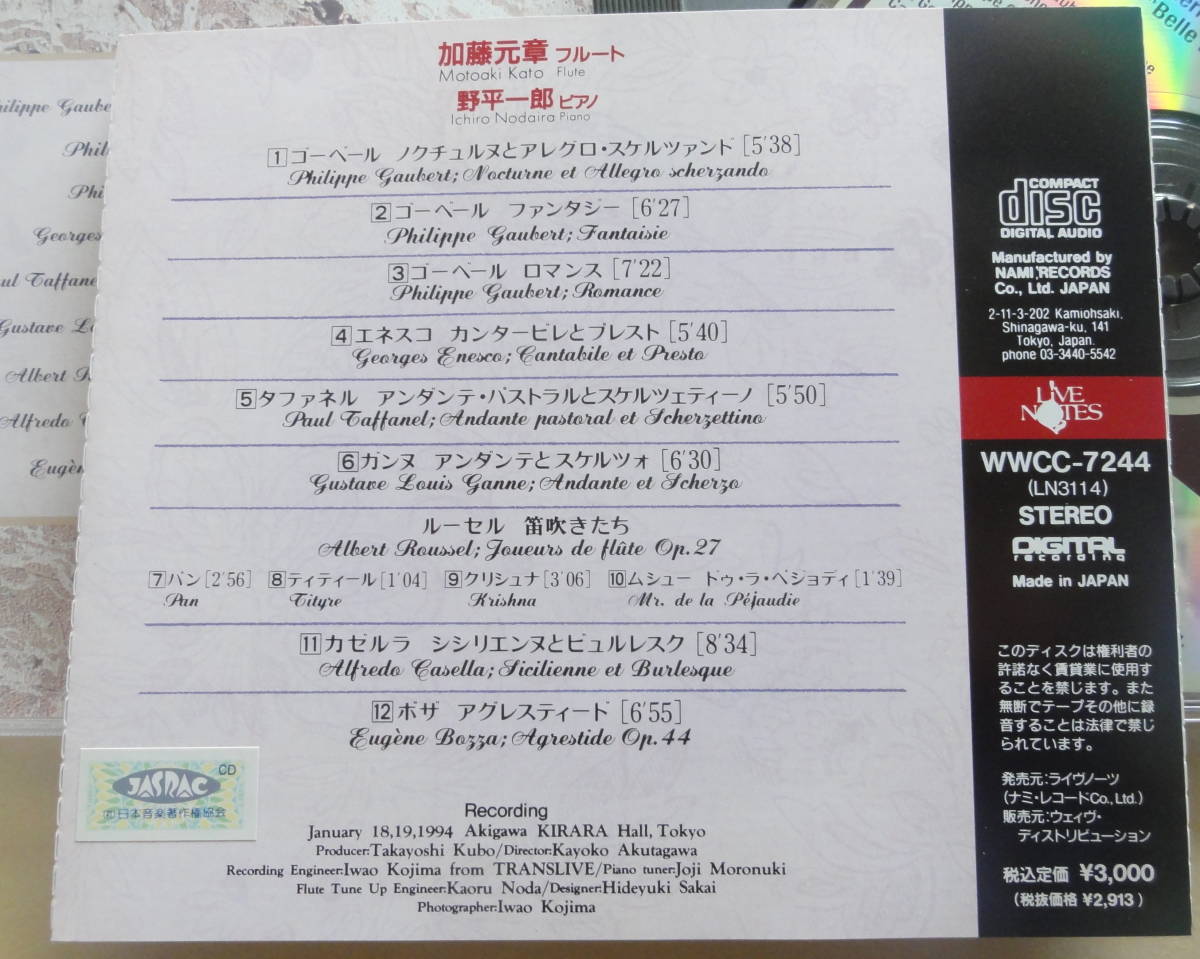 加藤元章 フルート
Motoaki Kato Flute
野平一郎 ピアノ
Ichiro Nodaira Piano
1 ゴーベール ノクチュルヌとアレグロ・スケルツァンド [5'38]
Philippe Gaubert; Nocturne et Allegro scherzando
2 ゴーベール ファンタジー [6'27]
Philippe Gaubert; Fantaisie
3 ゴーベール ロマンス [7'22]
Philippe Gaubert; Romance
4 エネスコ カンタービレとプレスト [5'40]
Georges Enesco; Cantabile et Presto
5 タファネル アンダンテ・パストラルとスケルツェティーノ [5'50]
Paul Taffanel; Andante pastoral et Scherzettino
6 ガンヌ アンダンテとスケルツォ [6'30]
Gustave Louis Ganne; Andante et Scherzo
ルーセル 笛吹きたち
Albert Roussel; Joueurs de flûte Op.27
7 パン [2'56] 8 ティティール [1'04] 9 クリシュナ [3'06] 10 ムシュー ドゥ・ラ・ペジョディ [1'39]
Pan Tityre Krishna Mr. de la Péjaudie
11 カゼルラ シシリエンヌとビュルレスク [8'34]
Alfredo Casella; Sicilienne et Burlesque
12 ボザ アグレスティード [6'55]
Eugène Bozza; Agrestide Op.44
JASRAC CD
日本音楽著作権協会
Recording
January 18,19,1994 Akigawa KIRARA Hall, Tokyo
Producer:Takayoshi Kubo/Director:Kayoko Akutagawa
Recording Engineer:Iwao Kojima from TRANSLIVE/Piano tuner:Joji Moronuki
Flute Tune Up Engineer:Kaoru Noda/Designer:Hideyuki Sakai
Photographer:Iwao Kojima
COMPACT
disc
DIGITAL AUDIO
Manufactured by
NAMI RECORDS
Co., Ltd. JAPAN
2-11-3-202 Kamiohsaki,
Shinagawa-ku, 141
Tokyo, Japan.
phone 03-3440-5542
LIVE
NOTES
WWCC-7244
(LN3114)
STEREO
DIGITAL
recording
Made in JAPAN
このディスクは権利者の
許諾なく賃貸業に使用す
ることを禁じます。また
無断でテープその他に録
音することは法律で禁じ
られています。
発売元:ライヴノーツ
(ナミ・レコードCo., Ltd.)
販売元:ウェイヴ・
ディストリビューション
税込定価 ¥3,000
(税抜価格 ¥2,913)
Philippe Gaube
Phil
Phi
Georges
ul Taffane
Gustave Lo
Albert R
Alfredo
Eugèn
Belle